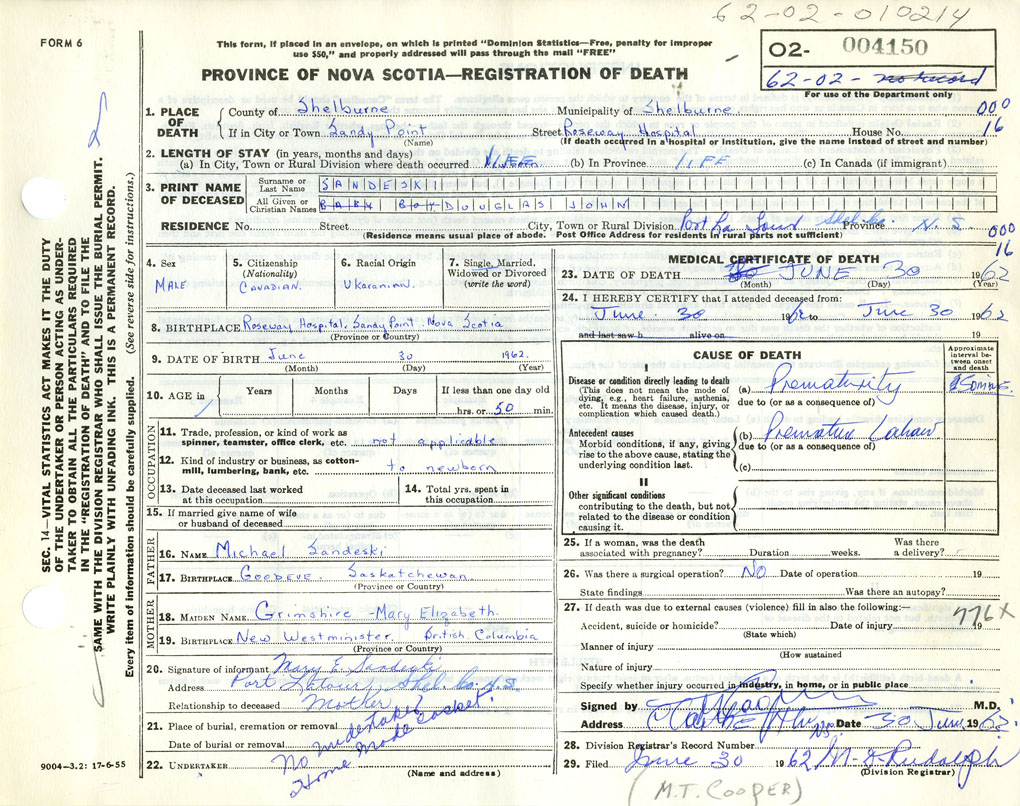 62-02-010214
FORM 6
This form, if placed in an envelope, on which is printed "Dominion Statistics—Free, penalty for improper
use $50," and properly addressed will pass through the mail "FREE"
O2- 004150
62-02- no record
For use of the Department only
PROVINCE OF NOVA SCOTIA—REGISTRATION OF DEATH
1. PLACE OF DEATH County of Shelburne Municipality of Shelburne 000
If in City or Town Sandy Point Street Roseway Hospital House No. 16
(Name) (If death occurred in a hospital or institution, give the name instead of street and number)
2. LENGTH OF STAY (in years, months and days)
(a) In City, Town or Rural Division where death occurred LIFE (b) In Province LIFE (c) In Canada (if immigrant)
3. PRINT NAME OF DECEASED
Surname or Last Name SANDESKI
All Given or Christian Names BABY BOY DOUGLAS JOHN
RESIDENCE No. Street City, Town or Rural Division Port La Tour Shel. Co. Province N.S. 000
(Residence means usual place of abode. Post Office Address for residents in rural parts not sufficient) 16
4. Sex MALE
5. Citizenship (Nationality) CANADIAN.
6. Racial Origin Ukaranian.
7. Single, Married, Widowed or Divorced (write the word)
8. BIRTHPLACE Roseway Hospital, Sandy Point. Nova Scotia
(Province or Country)
9. DATE OF BIRTH June 30 1962.
(Month) (Day) (Year)
10. AGE in Years Months Days If less than one day old
hrs. or 50 min.
OCCUPATION
11. Trade, profession, or kind of work as spinner, teamster, office clerk, etc. not applicable
12. Kind of industry or business, as cotton-mill, lumbering, bank, etc. to newborn
13. Date deceased last worked at this occupation
14. Total yrs. spent in this occupation
15. If married give name of wife or husband of deceased
FATHER
16. NAME Michael Sandeski
17. BIRTHPLACE GOODEVE. Saskatchewan.
(Province or Country)
MOTHER
18. MAIDEN NAME Grimshire -Mary Elizabeth.
19. BIRTHPLACE New Westminister. British Columbia
(Province or Country)
20. Signature of informant Mary E Sandeski
Address Port Latour Shel. Co. N.S.
Relationship to deceased Mother
21. Place of burial, cremation or removal
Date of burial or removal
22. UNDERTAKER No undertaker
Home made casket!
(Name and address)
9004-3.2: 17-6-55
MEDICAL CERTIFICATE OF DEATH
23. DATE OF DEATH JUNE 30 1962
(Month) (Day) (Year)
24. I HEREBY CERTIFY that I attended deceased from:
June 30 1962 to June 30 1962
and last saw h alive on 19
CAUSE OF DEATH
Approximate interval between onset and death
I
Disease or condition directly leading to death
(This does not mean the mode of dying, e.g., heart failure, asthenia, etc. It means the disease, injury, or complication which caused death.)
(a) Prematurity 50 MINS.
due to (or as a consequence of)
Antecedent causes
Morbid conditions, if any, giving rise to the above cause, stating the underlying condition last.
(b) Premature Labour
due to (or as a consequence of)
(c)
II
Other significant conditions contributing to the death, but not related to the disease or condition causing it.
25. If a woman, was the death associated with pregnancy? Duration weeks. Was there a delivery?
26. Was there a surgical operation? No Date of operation 19
State findings Was there an autopsy?
27. If death was due to external causes (violence) fill in also the following:— 776X
Accident, suicide or homicide? Date of injury 19
(State which)
Manner of injury
(How sustained
Nature of injury
Specify whether injury occurred in industry, in home, or in public place
Signed by M.D.
Address N.S. Date 30 June 1962
28. Division Registrar's Record Number
29. Filed June 30 1962 M. D. Rudolph
(Division Registrar)
(M.T. COOPER)
SEC. 14—VITAL STATISTICS ACT MAKES IT THE DUTY
OF THE UNDERTAKER OR PERSON ACTING AS UNDER-
TAKER TO OBTAIN ALL THE PARTICULARS REQUIRED
IN THE "REGISTRATION OF DEATH" AND TO FILE THE
SAME WITH THE DIVISION REGISTRAR WHO SHALL ISSUE THE BURIAL PERMIT.
WRITE PLAINLY WITH UNFADING INK. THIS IS A PERMANENT RECORD.
Every item of information should be carefully supplied. (See reverse side for instructions.)